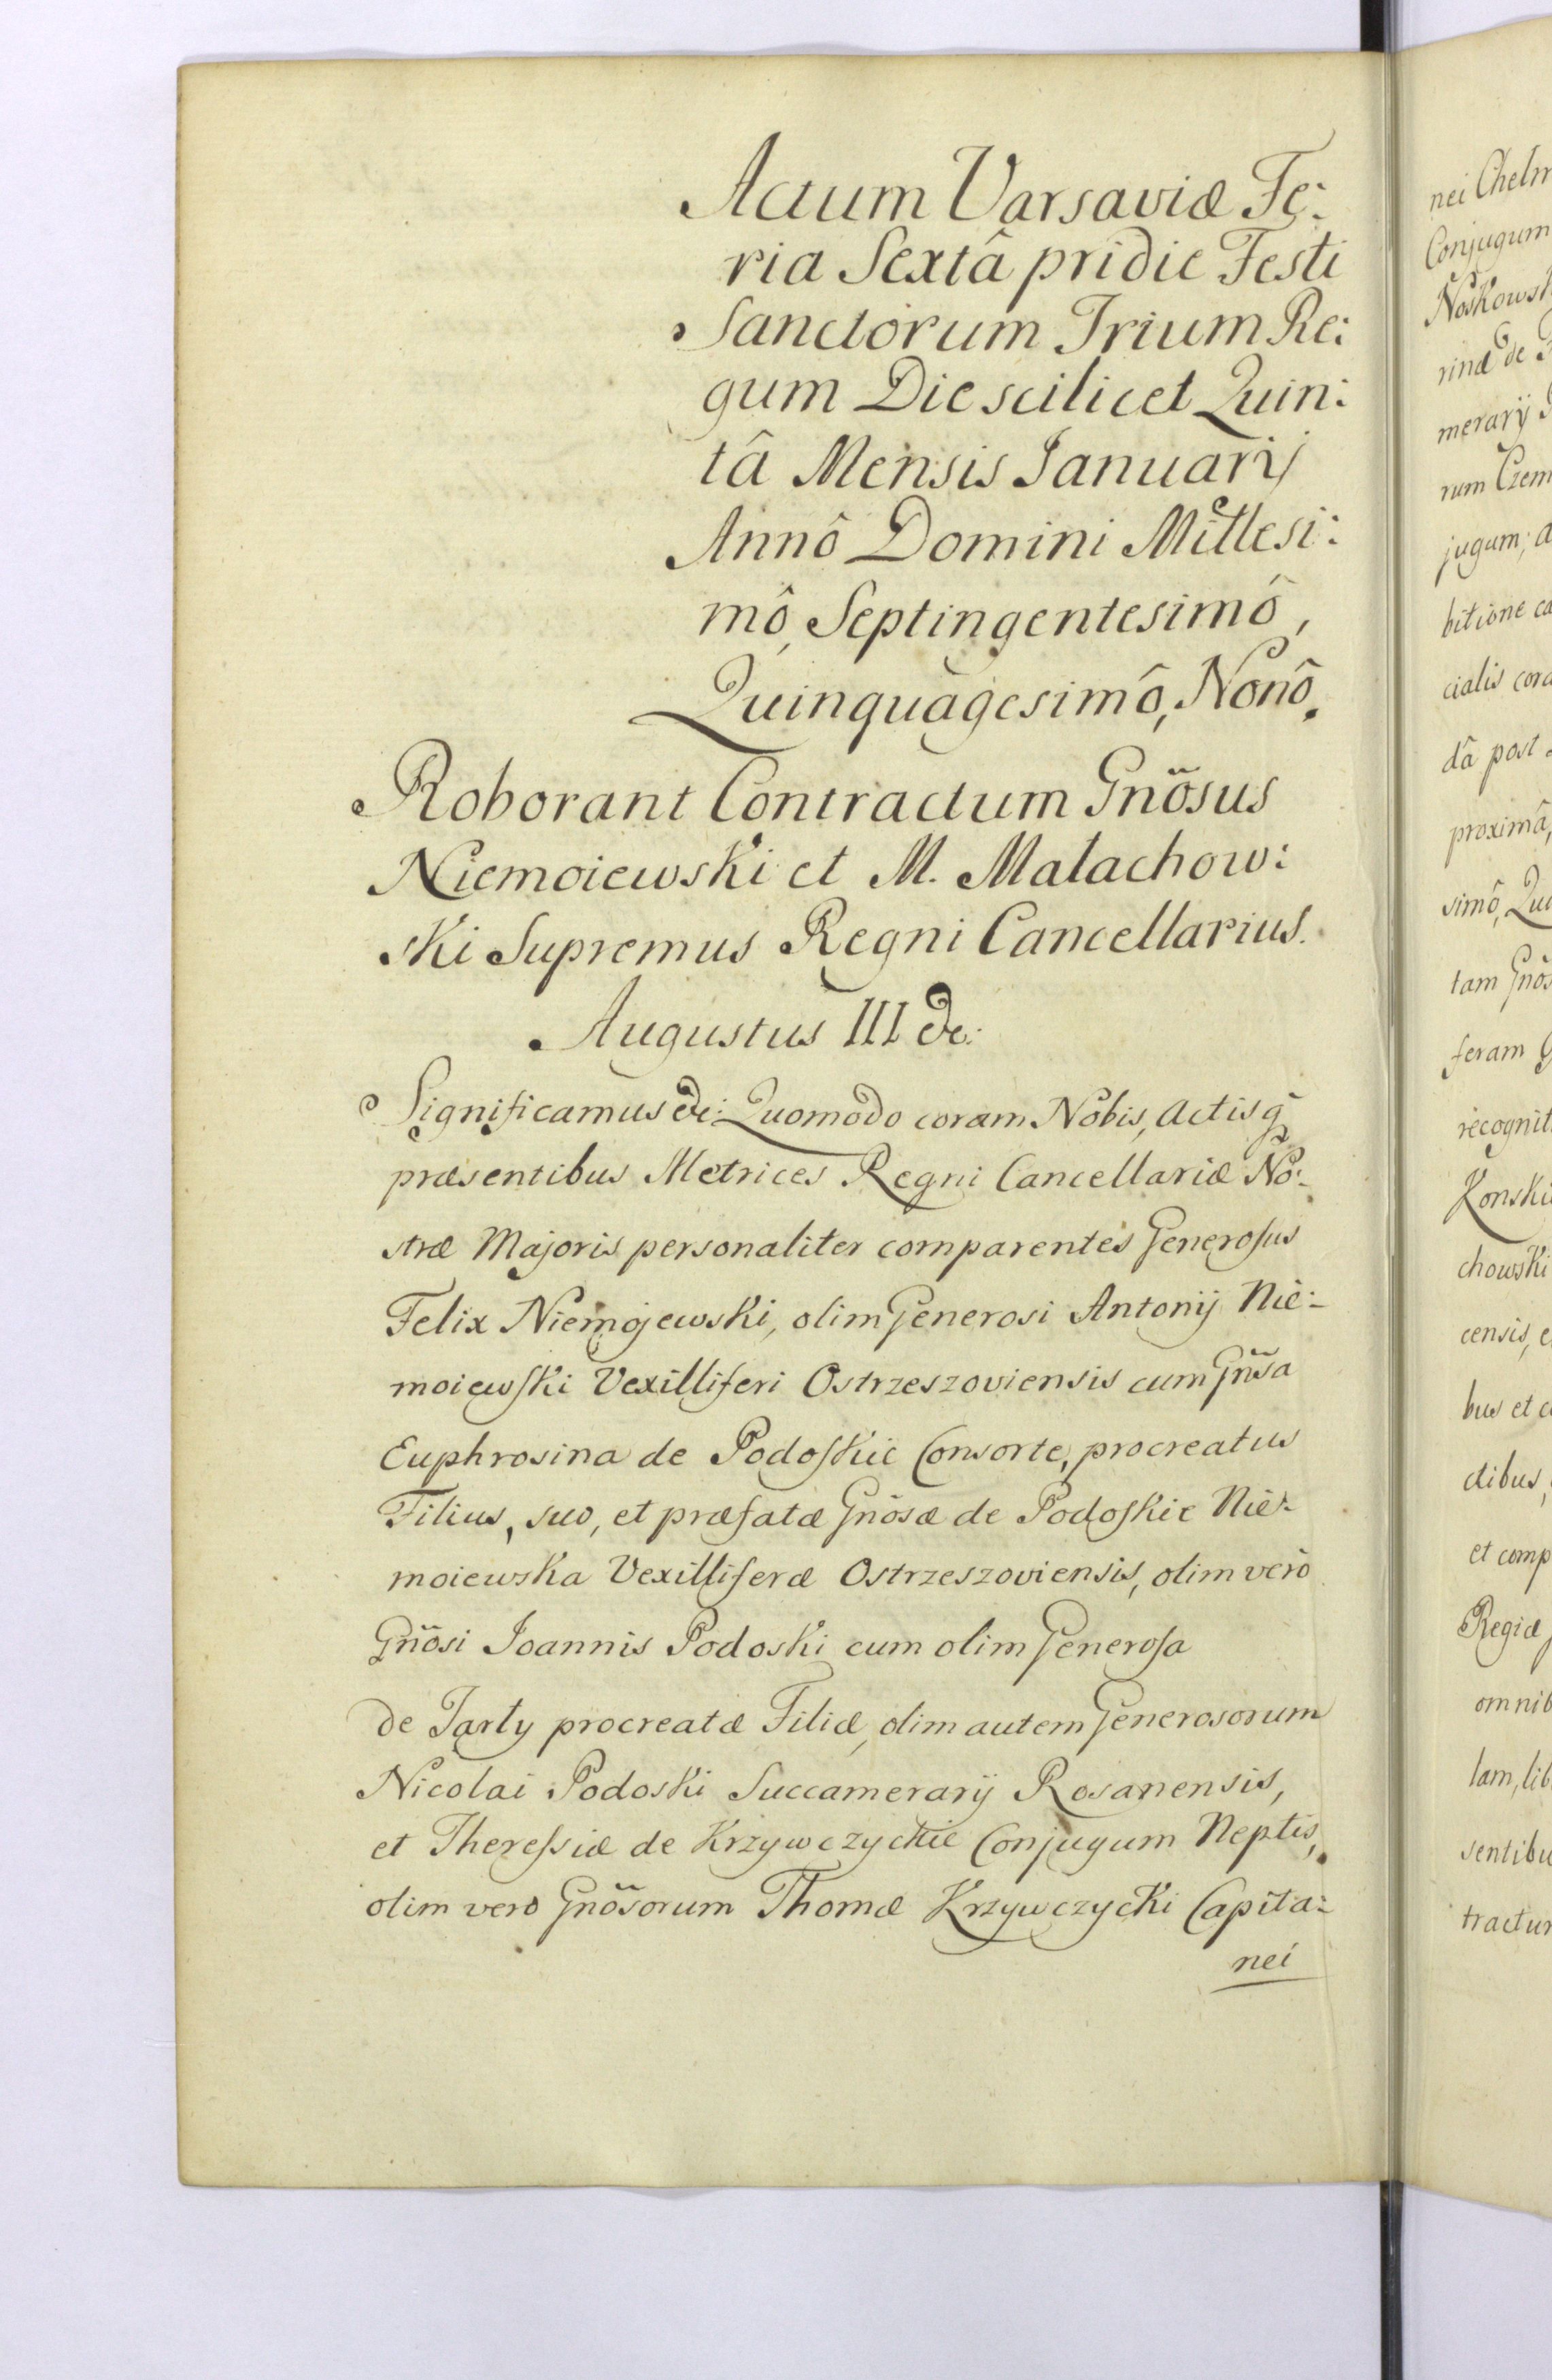 Actum Varsaviæ Fe:
ria Sextâ pridie Festi
Sanctorum Trium Re:
gum Die scilicet Quin:
tâ Mensis Januarij
Annô Domini Millesi:
mô, Septingentesimô,
Quinquagesimô, Nonô.
Roborant Contractum Gnõsus
Niemoiewski et M. Małachow:
ski Supremus Regni Cancellarius.
Augustus III &c:
Significamus &c: Quomodo coram Nobis, Actisq̃
præsentibus Metrices Regni Cancellariæ No:
stræ Majoris personaliter comparentes Generosus
Felix Niemojewski, olim Generosi Antonij Nie:
moiewski Vexilliferi Ostrzeszoviensis cum Gnsa
Euphrosina de Podoskie Consorte, procreatus
Filius, suo, et præfatæ Gnõsæ de Podoskie Nie:
moiewska Vexilliferæ Ostrzeszoviensis, olim verò
Gnõsi Joannis Podoski cum olim Generosa
de Tarły procreatæ Filiæ, olim autem Generosorum
Nicolai Podoski Succamerarij Rosanensis,
et Theressiæ de Krzywczyckie Conjugum Neptis,
olim vero Gnõsorum Thomæ Krzywczycki Capita:
nei
nei Chelm
Conjugum
Noskowsk
rinæ de
merarij
rum Czem
jugum; a
bitione ca
cialis cora
dâ post
proximâ,
simô, Qu
tam Gnõs
feram
recognit
Konski
chowski
censis, e
bus et c
ctibus,
et comp
Regiæ
omnib
lam, lib
sentibu
tractu